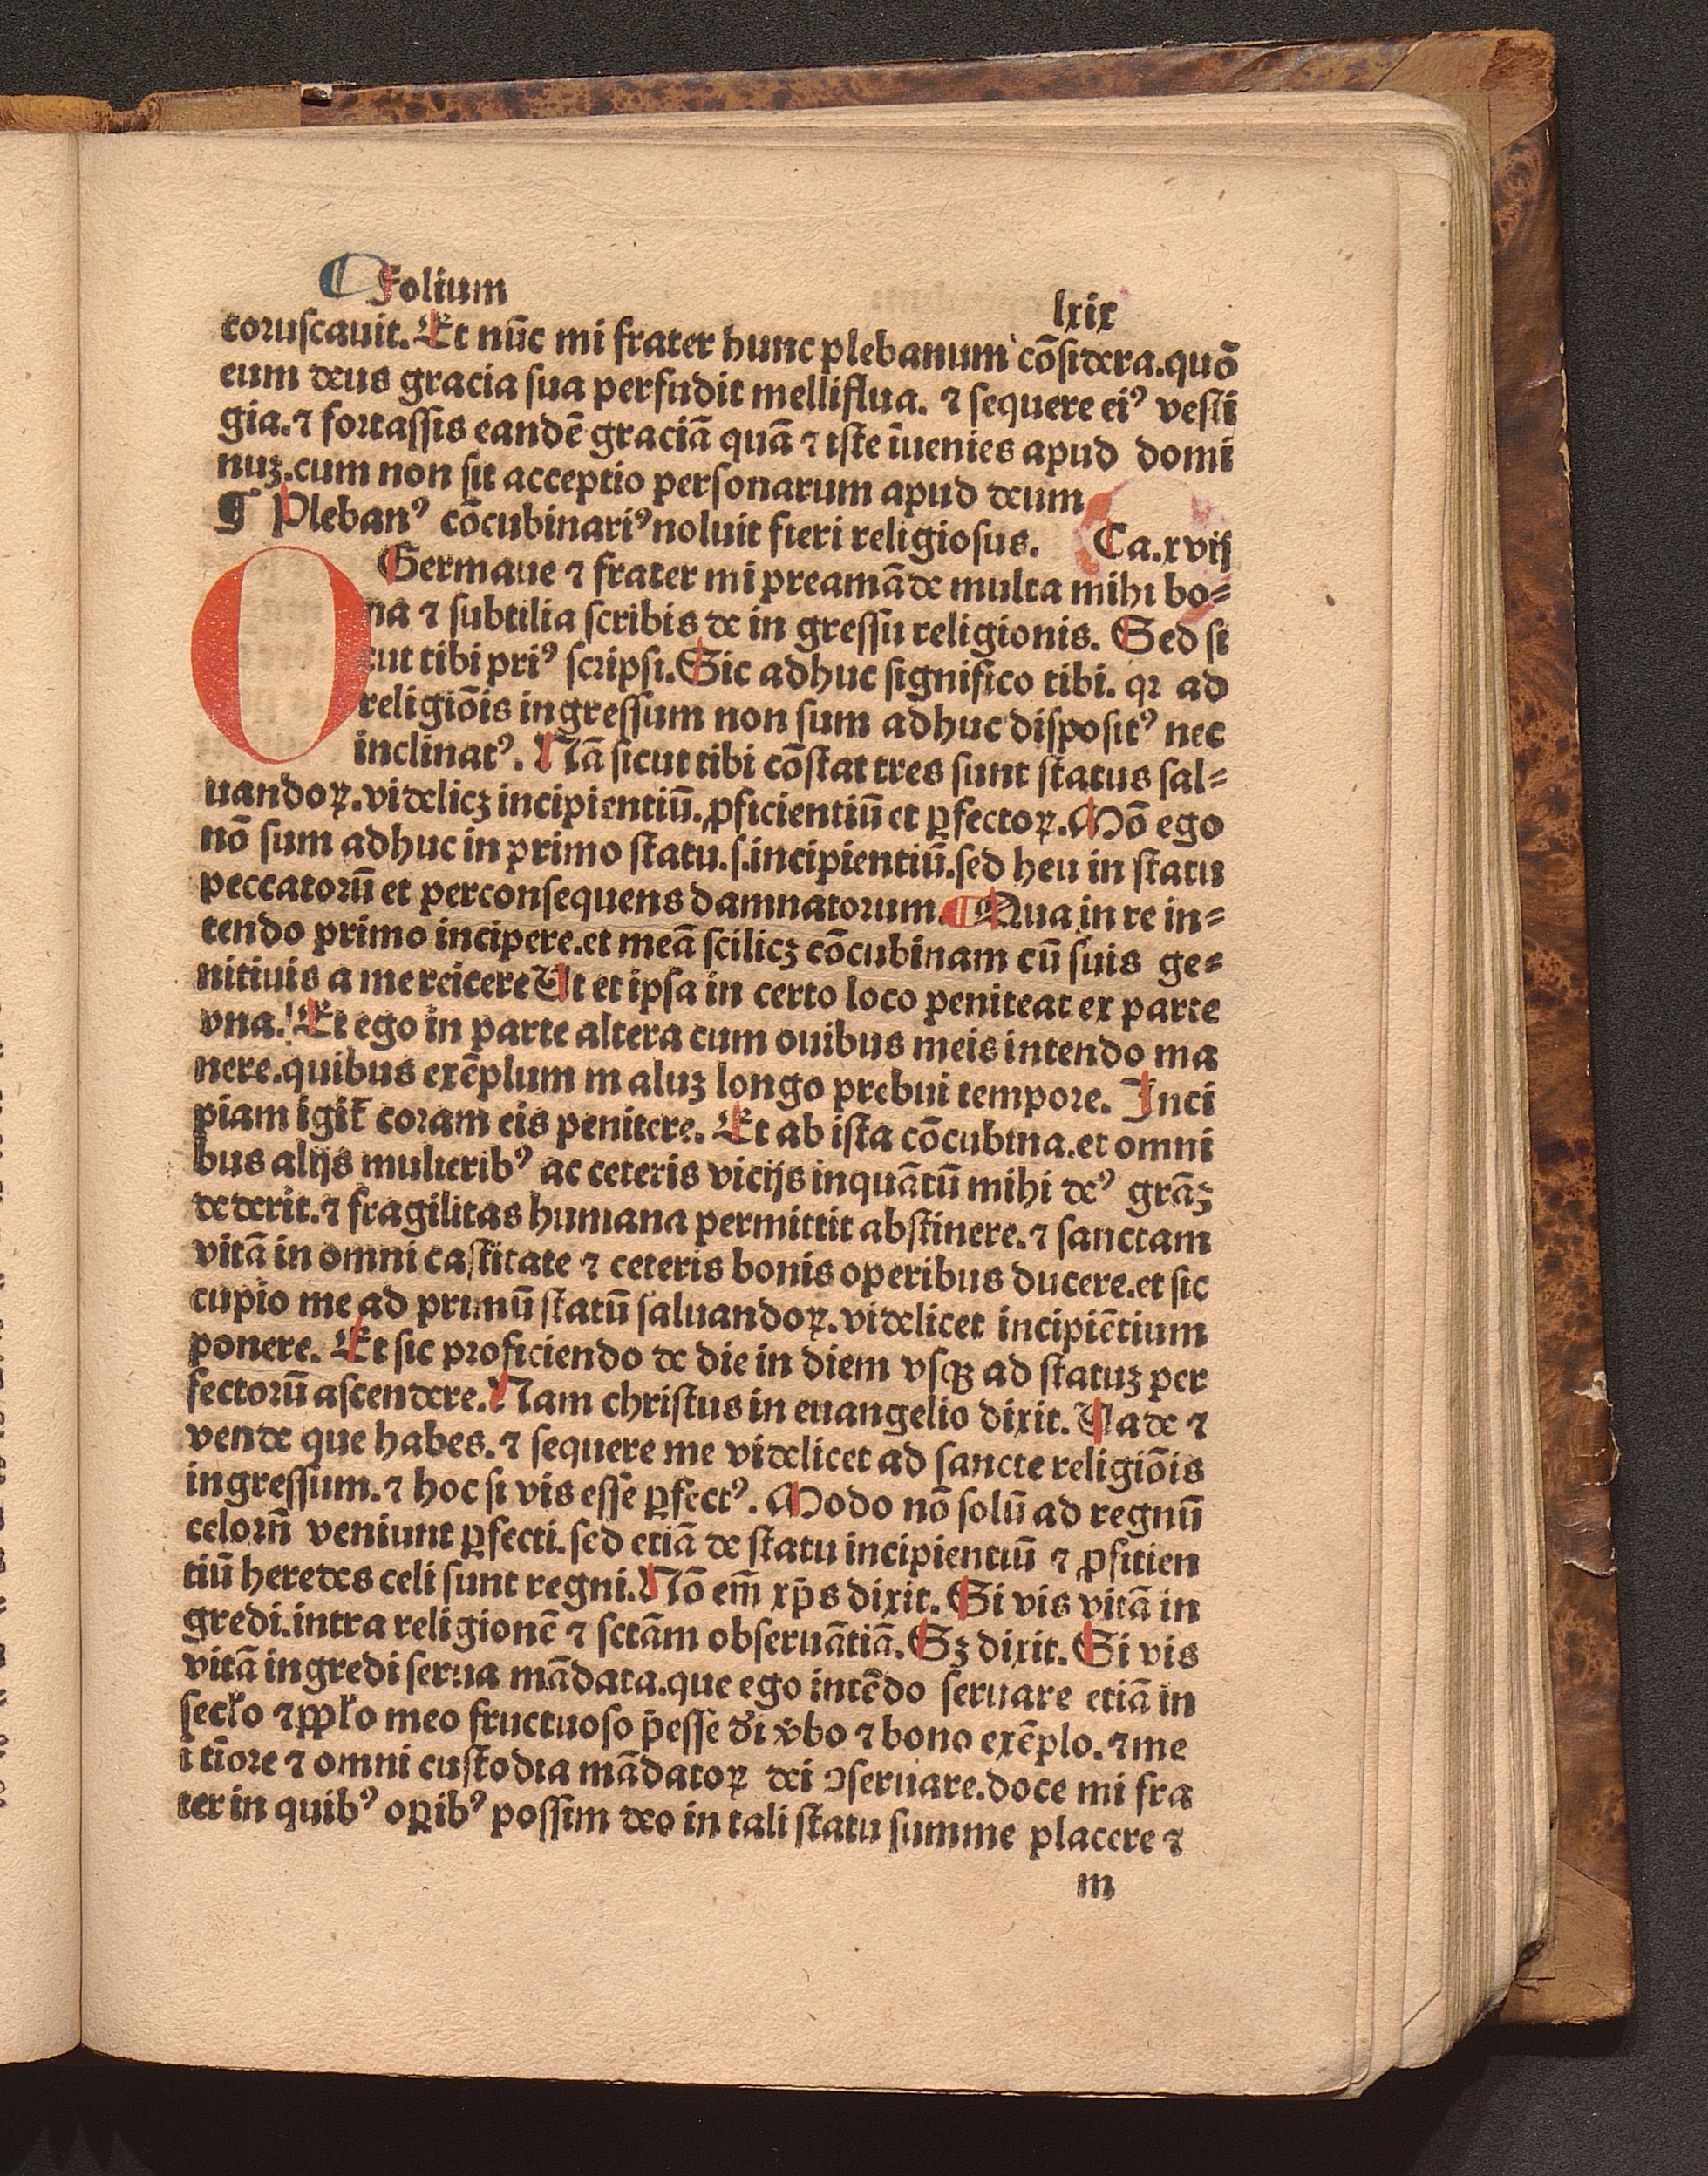 Folium lxix
coruſcauit. Et nūc mi frater hunc plebanum cōſidera.quō
eum deus gracia ſua perfudit melliflua. ⁊ ſequere eiꝰ veſti
gia.⁊ fortaſſis eandē graciā quā ⁊ iſte īuenies apud domi
nuꝫ.cum non ſit acceptio perſonarum apud deum
¶ Plebanꝰ cōcubinariꝰ noluit fieri religioſus. Ca.xvij
O Germane ⁊ frater mi preamāde multa mihi bo⸗
na ⁊ ſubtilia ſcribis de in greſſu religionis. Sed ſi
cut tibi priꝰ ſcripſi.Sic adhuc ſignifico tibi. qꝛ ad
religiōis ingreſſum non ſum adhuc diſpoſitꝰ nec
inclinatꝰ. Nā ſicut tibi cōſtat tres ſunt ſtatus ſal⸗
uandoꝝ.videlicꝫ incipientiū.ꝓficientiū et ꝑfectoꝝ.Mō ego
nō ſum adhuc in primo ſtatu.ſ.incipientiū.ſed heu in ſtatu
peccatorū et perconſequens damnatorum. ¶ Qua in re in⸗
tendo primo incipere.et meā ſcilicꝫ cōcubinam cū ſuis ge⸗
nitiuis a me reicere Ut et ipſa in certo loco peniteat ex parte
vna. Et ego in parte altera cum ouibus meis intendo ma
nere.quibus exēplum m aluꝫ longo prebui tempore. Inci
piam igit̄ coram eis penitere. Et ab iſta cōcubina.et omni
bus alijs mulieribꝰ ac ceteris vicijs inquātū mihi deꝰ grāꝫ
dederit.⁊ fragilitas humana permittit abſtinere.⁊ ſanctam
vitā in omni caſtitate ⁊ ceteris bonis operibus ducere.et ſic
cupio me ad primū ſtatū ſaluandoꝝ.videlicet incipiētium
ponere. Et ſic proficiendo de die in diem vſqꝫ ad ſtatuꝫ per
fectorū aſcendere.Nam chriſtus in euangelio dixit. Vade ⁊
vende que habes.⁊ ſequere me videlicet ad ſancte religiōis
ingreſſum.⁊ hoc ſi vis eſſe ꝑfectꝰ. Modo nō ſolū ad regnū
celorū veniunt ꝑfecti.ſed etiā de ſtatu incipientiū ⁊ ꝓfitien
tiū heredes celi ſunt regni.Nō em̄ xp̄s dixit. Si vis vitā in
gredi.intra religionē ⁊ ſctām obſeruātiā.Sꝫ dixit. Si vis
vitā ingredi ſerua mādata.que ego intēdo ſeruare etiā in
ſecło ⁊ ppło meo fructuoſo p̄eſſe di v̄bo ⁊ bono exēplo.⁊ me
ī tiōre ⁊ omni cuſtodia mādatoꝝ dei ↄſeruare.doce mi fra
ter in quibꝰ oꝑibꝰ poſſim deo in tali ſtatu ſumme placere ⁊
m